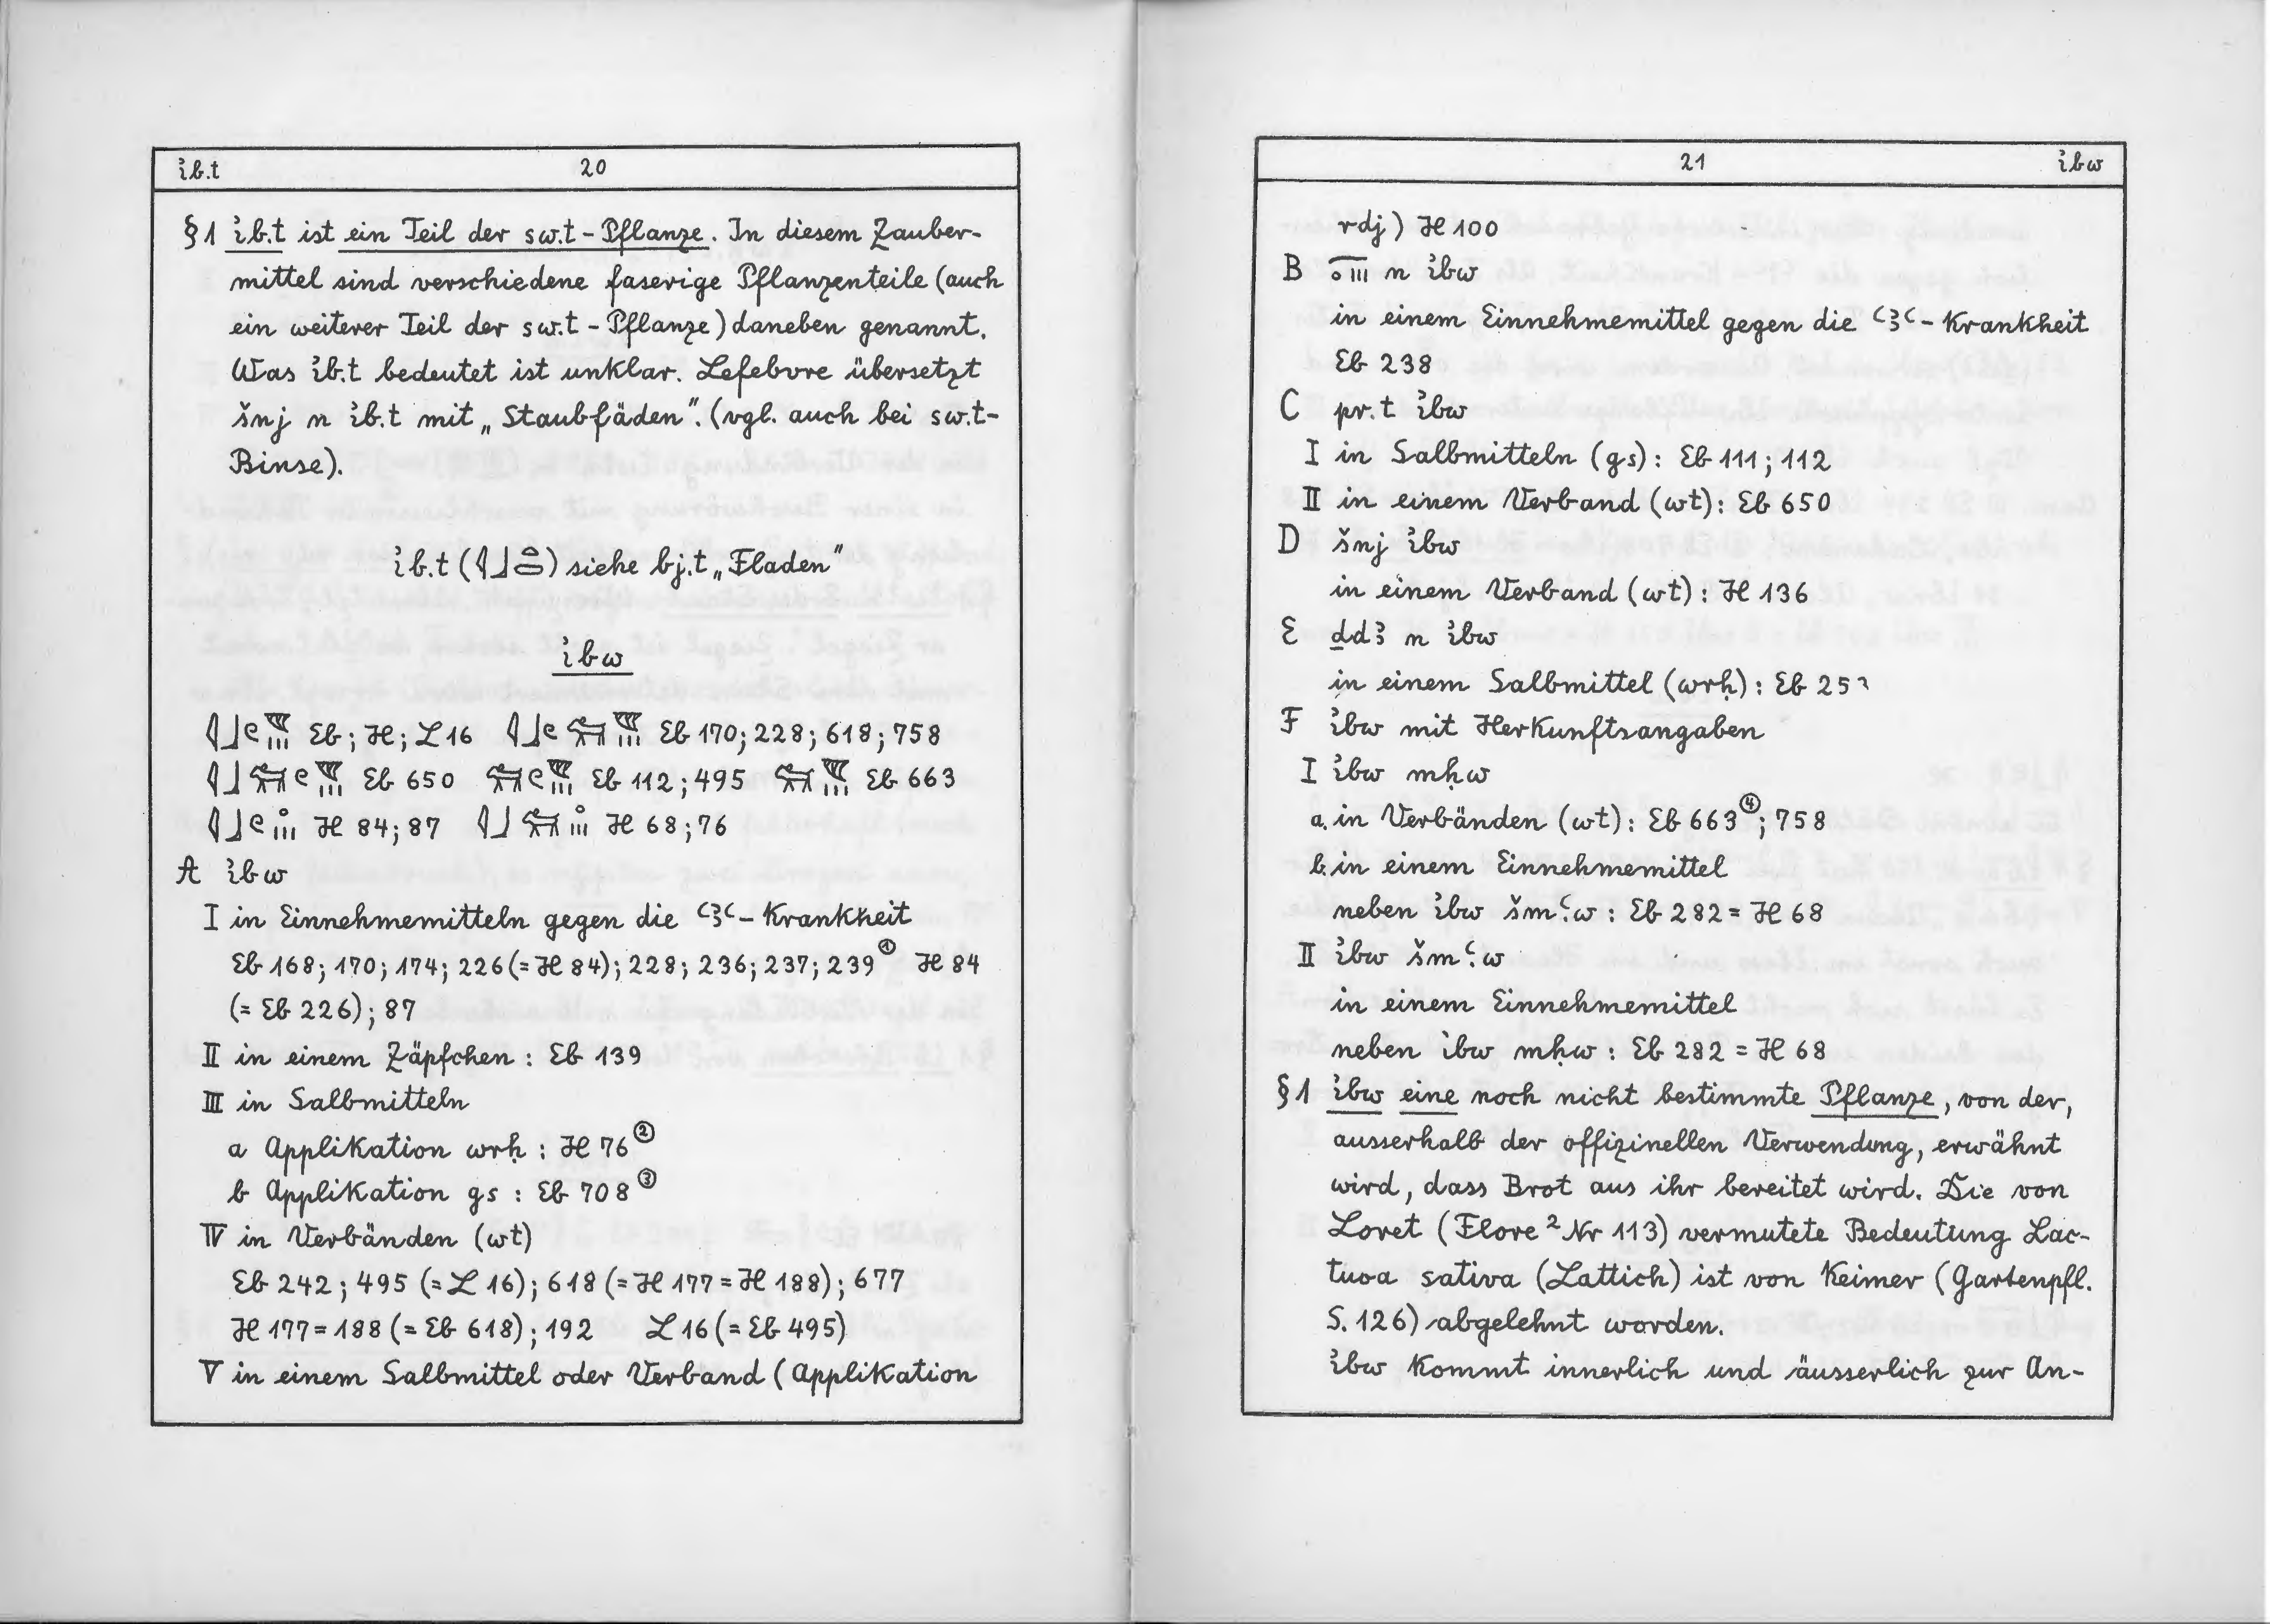 ỉb.t 20
§1 ỉb.t ist ein Teil der sw.t-Pflanze. In diesem Zauber-
mittel sind verschiedene faserige Pflanzenteile (auch
ein weiterer Teil der sw.t-Pflanze) daneben genannt.
Was ỉb.t bedeutet ist unklar. Lefebvre übersetzt
šnj n ỉb.t mit „Staubfäden". (vgl. auch bei sw.t-
Binse).
ỉb.t () siehe bj.t „Fladen"
ỉbw
Eb; H; L 16 Eb 170; 228; 618; 758
Eb 650 Eb 112; 495 Eb 663
H 84; 87 H 68; 76
A ỉbw
I in Einnehmemitteln gegen die ꜥꜣꜥ-Krankheit
Eb 168; 170; 174; 226 (= H 84); 228; 236; 237; 239① H 84
(= Eb 226); 87
II in einem Zäpfchen : Eb 139
III in Salbmitteln
a Applikation wrḥ : H 76②
b Applikation gs : Eb 708③
IV in Verbänden (wt)
Eb 242; 495 (= L 16); 618 (= H 177 = H 188); 677
H 177 = 188 (= Eb 618); 192 L 16 (= Eb 495)
V in einem Salbmittel oder Verband (Applikation
21 ỉbw
rdj) H 100
B n ỉbw
in einem Einnehmemittel gegen die ꜥꜣꜥ-Krankheit
Eb 238
C pr.t ỉbw
I in Salbmitteln (gs): Eb 111; 112
II in einem Verband (wt): Eb 650
D šnj ỉbw
in einem Verband (wt): H 136
E ḏdꜣ n ỉbw
in einem Salbmittel (wrḥ): Eb
F ỉbw mit Herkunftsangaben
I ỉbw mḥw
a. in Verbänden (wt): Eb 663④; 758
b. in einem Einnehmemittel
neben ỉbw šmꜥw : Eb 282 = H 68
II ỉbw šmꜥw
in einem Einnehmemittel
neben ỉbw mḥw : Eb 282 = H 68
§1 ỉbw eine noch nicht bestimmte Pflanze, von der,
ausserhalb der offizinellen Verwendung, erwähnt
wird, dass Brot aus ihr bereitet wird. Die von
Loret (Flore ² Nr 113) vermutete Bedeutung Lac-
tuca sativa (Lattich) ist von Keimer (Gartenpfl.
S. 126) abgelehnt worden.
ỉbw kommt innerlich und äusserlich zur An-